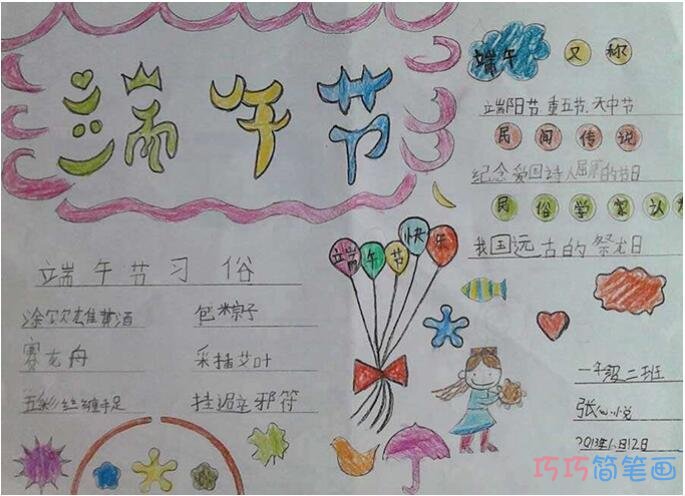 端午节
端午 又称
端阳日节、重五节、天中节
民间传说
纪念爱国诗人屈原的节日
民俗学家认为
我国远古的祭龙日
端午节快乐
端午节习俗
涂饮雄黄酒 包粽子
赛龙舟 采插艾叶
五彩丝缠手足 挂避邪符
一年级二班
2013年6月12日
巧巧简笔画